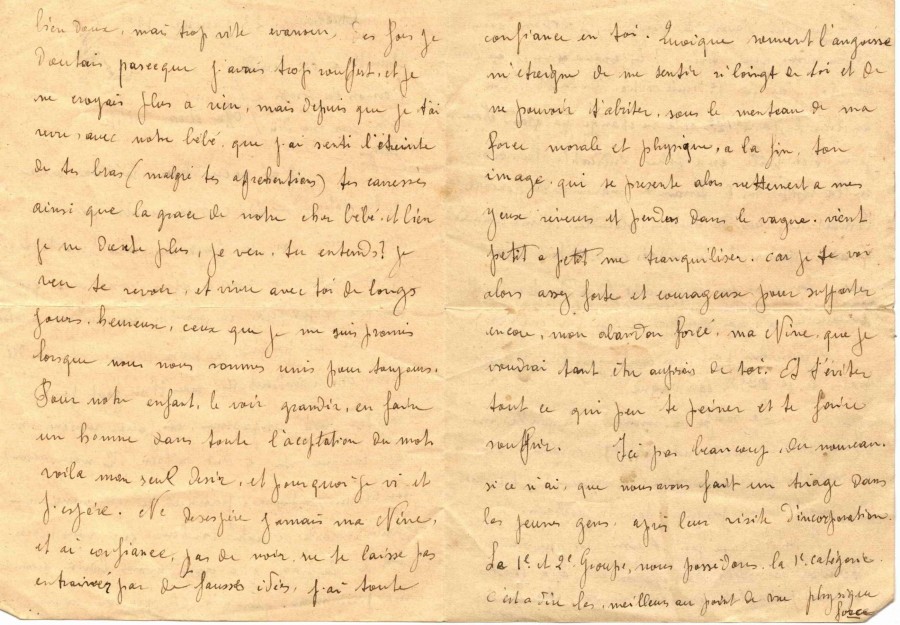 bien doux, mais trop vite evanoui, Des fois je
Doutais parceque j'avais trop souffert, et je
ne croyais plus a rien, mais depuis que je t'ai
revu, avec notre bébé. que j'ai senti l'étreinte
de tes bras (malgré tes apprehentions) tes carresses
ainsi que la grace de notre cher bébé. et bien
je ne Doute plus, je veu, tu entends? je
veu te revoir, et vivre avec toi de longs
jours, heureuse, ceux que je me suis promis
lorsque nous nous sommes unis pour toujours.
Pour notre enfant, le voir grandir, en faire
un homme dans toute l'acceptation du mots
voila mon seul Desir, et pourquoi je vi et
j'espére. Ne desespére jamais ma Nine,
et ai confiance, pas de noir, ne te laisse pas
entrainez par de fausses idées, j'ai toute
confiance en toi. Quoique souvent l'angoisse
m'etreigne de me sentir si loingt de toi et de
ne pouvoir t'abriter, sous le menteau de ma
force morale et physique, a la fin, ton
image. qui se presente alors nettement a mes
yeux reveurs et perdus dans le vague. vient
petit a petit me tranquiliser. car je te voi
alors assez forte et courageuse pour supporter
encore, mon abandon forcé, ma Nine, que je
voudrai tant être auprais de toi. Et t'éviter
tout ce qui peu te peiner et te faire
souffrir. Ici pas beaucoup, du nouveau.
si ce n'ai, que nous avons fait un triage dans
les jeunes gens. après leur visite d'incorporation.
Le 1e et 2e Groupe, nous possédons la 1e catégorie.
c'est a dire les, meilleurs au point de vue physique
force